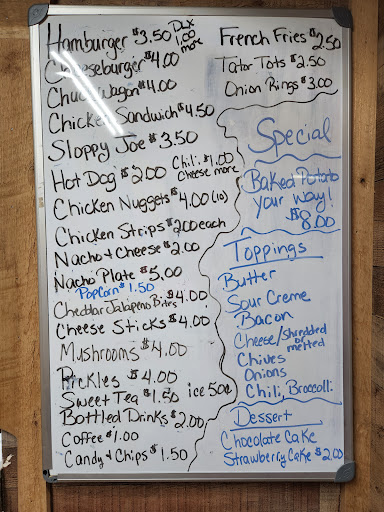 Hamburger $3.50 DLX 1.00 more
Cheeseburger $4.00
Chuckwagon $4.00
Chicken Sandwich $4.50
Sloppy Joe $3.50
Hot Dog $2.00 Chili $1.00 Cheese more
Chicken Nuggets $4.00 (10)
Chicken Strips $2.00 each
Nacho & Cheese $2.00
Nacho Plate $5.00
PopCorn $1.50
Cheddar Jalapeno Bites $4.00
Cheese Sticks $4.00
Mushrooms $4.00
Pickles $4.00
Sweet Tea $1.50 ice 50¢
Bottled Drinks $2.00
Coffee $1.00
Candy & Chips $1.50
French Fries $2.50
Tator Tots $2.50
Onion Rings $3.00
Special
Baked Potato
your way!
$8.00
Toppings
Butter
Sour Creme
Bacon
Cheese/shredded or melted
Chives
Onions
Chili, Broccolli
Dessert
Chocolate Cake
Strawberry Cake $2.00